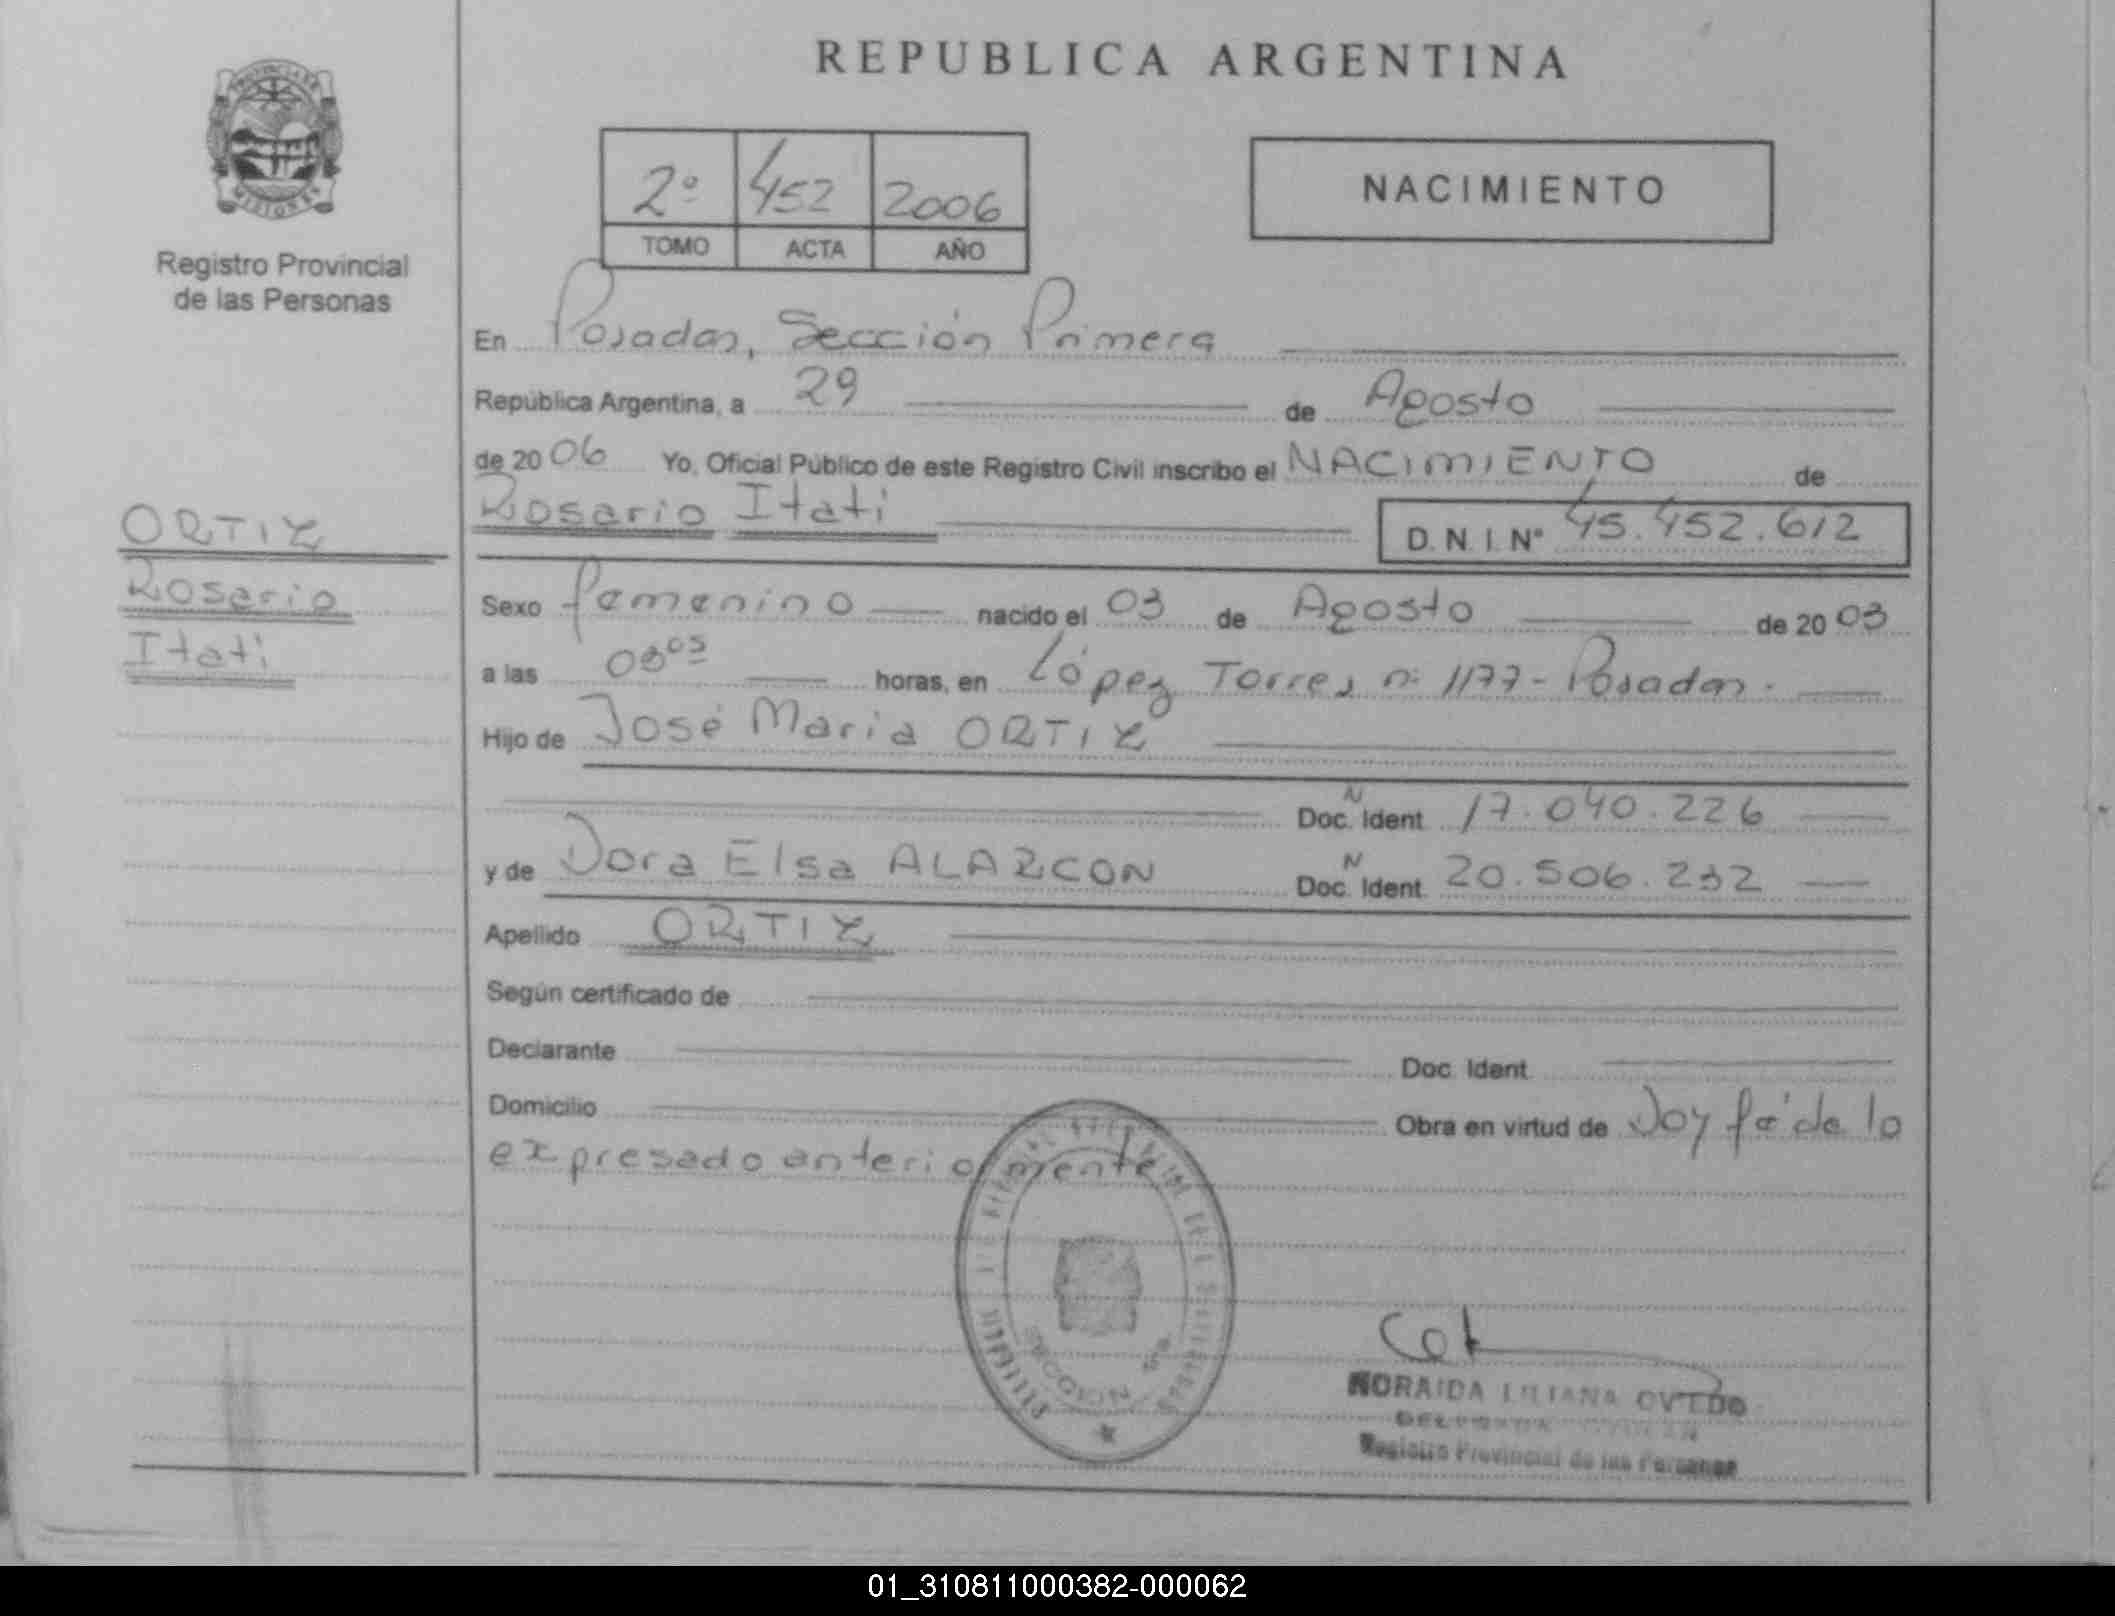 REPUBLICA ARGENTINA
PROVINCIA DE
MISIONES
Registro Provincial
de las Personas
2º 452 2006
TOMO ACTA AÑO
NACIMIENTO
En Posadas, Sección Primera
República Argentina, a 29 de Agosto
de 2006 Yo, Oficial Público de este Registro Civil inscribo el NACIMIENTO de
Rosario Itati D. N. I. Nº 45.452.612
ORTIZ
Rosario
Itati
Sexo femenino nacido el 03 de Agosto de 2003
a las 08⁰⁵ horas, en López Torres nº 1177 - Posadas.
Hijo de José Maria ORTIZ
N
Doc. Ident. 17.040.226
y de Dora Elsa ALARCON N Doc. Ident. 20.506.232
Apellido ORTIZ
Según certificado de
Declarante Doc. Ident.
Domicilio Obra en virtud de Doy fe de lo
expresado anteriormente
SECCION 1ra
NORAIDA LILIANA OVIEDO
Registro Provincial de las Personas
01_310811000382-000062